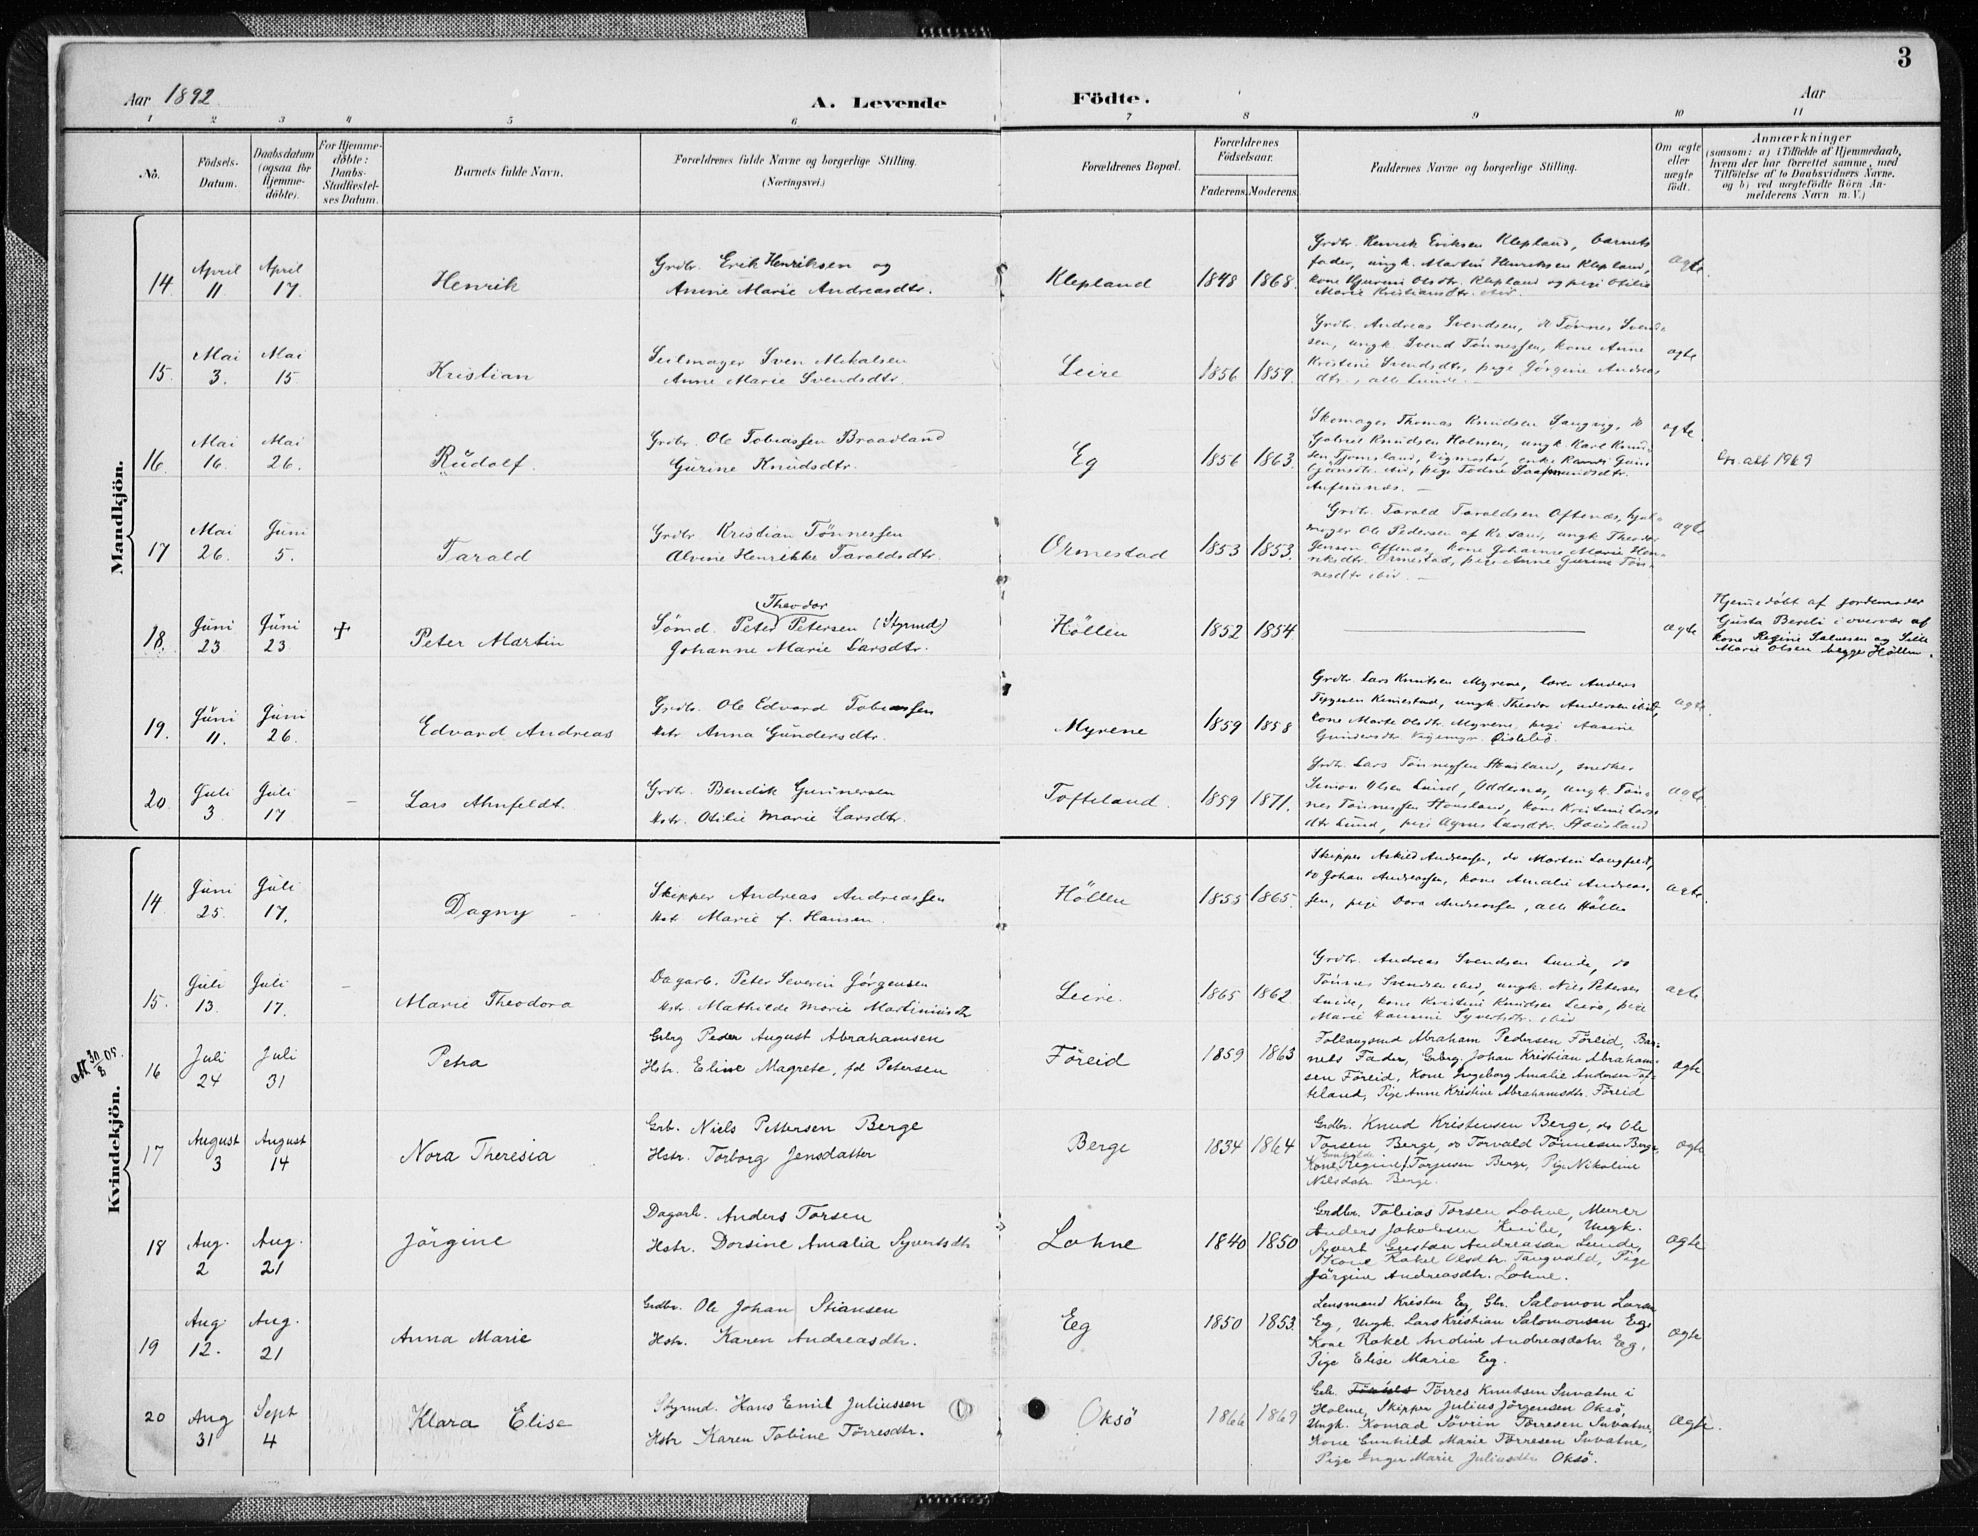 3
Aar 1892.
A. Levende Födte.
Aar
1 2 3 4 5 6 7 8 9 10 11
No.
Födsels-
Datum.
Daabsdatum
(ogsaa for
Hjemme-
döbte).
For Hjemme-
döbte:
Daabs-
Stadfæstel-
ses Datum.
Barnets fulde Navn.
Forældrenes fulde Navne og borgerlige Stilling.
(Næringsvei.)
Forældrenes Bopæl.
Forældrenes
Födselsaar.
Faderens. Moderens.
Faddernes Navne og borgerlige Stilling.
Om ægte
eller
uægte
födt.
Anmærkninger
(saasom: a) i Tilfælde af Hjemmedaab,
hvem der har forrettet samme, med
Tilföielse af to Daabsvidners Navne.
og b) ved uægtefödte Börn An-
melderens Navn m. V.)
Mandkjön.
14. April 11 April 17 Henrik
Grdbr. Erik Henriksen og
Anine Marie Andreasdtr.
Klepland 1848 1868.
Grdbr. Henrik Eriksen Klepland, barnets
fader, ungk. Martin Henriksen Klepland,
kone Gurine Olsdtr. Klepland og pige Otilie
Marie Kristiansdtr. ibid.
ægte.
15. Mai 3. Mai 15 Kristian
Seilmager Sven Mikalsen
Anne Marie Svendsdtr.
Leire 1856 1859.
Grdbr. Andreas Svendsen, do Tönnes Svend-
sen, ungk. Svend Tönnessen, kone Anne
Kristine Svendsdtr, pige Jörgine Andreas
dtr., alle Lunde.
ægte
16. Mai 16. Mai 26. Rudolf.
Grdbr. Ole Tobiassen Braadland
Gurine Knudsdtr.
Eg 1856 1863.
Skomager Thomas Knudsen Langvig, do
Gabriel Knudsen Holmen, ungk. Karl Knud-
sen Tjomsland, Vigmostad, enke
ibid, pige Todne
ægte.
1969
17 Mai 26. Juni 5. Tarald
Grdbr. Kristian Tönnessen
Alvine Henrikke Taraldsdtr.
Ormestad 1853 1853.
Grdbr. Tarald Taraldsen Oftenæs, hjul-
mager Ole Pedersen af Kr.sand, ungk Theodor
Jensen Oftenæs, kone Johanne Marie Hen-
riksdtr. Ormestad, pige Anne Gurine Tön-
nesdtr ibid.
ægte
18. Juni 23 Juni 23 + Peter Martin
Theodor
Sömd. Peter Petersen (Styrmd)
Johanne Marie Larsdtr.
Höllen 1852 1854
ægte
Hjemedöbt af jordemoder
Gusta Berli i overvær af
kone Regine Salvesen og
Marie Olsen begge Höllen.
19. Juni 11. Juni 26. Edvard Andreas
Grdbr. Ole Edvard Tobiassen
Hstr. Anna Gundersdtr.
Myrene 1859 1858
Grdbr. Lars Knutsen Myrene, lærer Anders
ungk. Theodor Andersen ibid,
kone Marte Olsdtr. Myrene, pige Aasine
Gundersdtr. Öislebö.
ægte.
20. Juli 3 Juli 17 Lars Ahnfeldt
Grdbr. Bendik Gunnersen
Hstr. Otilie Marie Larsdtr.
Tofteland. 1859 1871.
Grdbr. Lars Tönnessen Stausland, snedker
Simon Olsen Lund, Oddernes, ungk. Tön-
nes Tönnessen Stausland, kone Kristine Lars
dtr Lund, pige Agnes Larsdtr. Stausland
ægte
Kvindekjön.
14. Juni 25. Juli 17. Dagny
Skipper Andreas Andreassen
Hst. Marie f. Hansen.
Höllen 1855 1865.
Skipper Askild Andreassen, do Martin Langfeldt,
do Johan Andreassen, kone Amalie Andreas-
sen, pige Dora Andreassen, alle Höllen
ægte.
15. Juli 13. Juli 17. Marie Theodora
Dagarb. Peter Severin Jörgensen
Hstr. Mathilde Marie Martiniusdtr
Leire. 1865 1862.
Grdbr. Andreas Svendsen Lunde, do
Tönnes Svendsen ibid, ungk. Niels Petersen
Lunde, kone Kristine Knudsen Leire, pige
Marie Hansine Syvertsdtr. ibid
ægte
M. 30/8 05.
16 Juli 24 Juli 31 Petra
Grbrg Peder August Abrahamsen
Hstr. Eline Magrete, fd Petersen
Föreid 1859 1863
Follaugsmd Abraham Pedersen Föreid, Bar-
nets Fader, Grbrg. Johan Kristian Abraham-
sen Föreid, Kone Ingeborg Amalie Andersen Tof-
teland, Pige Anne Kristine Abrahamsdtr. Föreid
ægte
17 August 3 August 14 Nora Theresia
Grb. Niels Pettersen Berge
Hstr. Torborg Jensdatter
Berge 1834 1864
Grdbr. Knud Kristensen Berge, do Ole
Torsen Berge, do Torvald Tönnesen Berge,
Gunhilde
Kone Regine Torjusen Berge, Pige Nikoline
Nilsdatr. Berge.
ægte
18 Aug. 2 Aug. 21 Jörgine
Dagarb. Anders Torsen
Hstr. Dorsine Amalia Syvertsdtr
Lohne 1840 1850
Grdbr. Tobias Torsen Lohne, Murer
Anders Jakobsen Kvile, Ungk.
Syvert Gustav Andreasan Lunde,
Kone Rakel Olsdtr. Tangvald, Pige
Järgine Andreasdtr. Lohne.
ægte
19 Aug. 12. Aug. 21 Anna Marie
Grdbr. Ole Johan Stiansen
Hstr. Karen Andreasdtr.
Eg 1850 1853.
Lensmand Kristen Eg, Gbr. Salomon Larsen
Eg, Ungk. Lars Kristian Salomonsen Eg,
Kone Rakel Andine Andreasdatr. Eg,
Pige Elise Marie Eg.
ægte
20 Aug 31 Sept 4 Klara Elise
Styrmd. Hans Emil Juliussen
Hstr Karen Tobine Törresdtr.
Oksö 1866 1869
Grb. Tönnes Törres Knutsen Suvatne i
Holme, Skipper Julius Jörgensen Oksö,
Ungk. Konrad Sövrin Törresen Suvatne,
Kone Gunhild Marie Törresen Suvatne,
Pige Inger Marie Juliusdtr Oksö.
ægte.